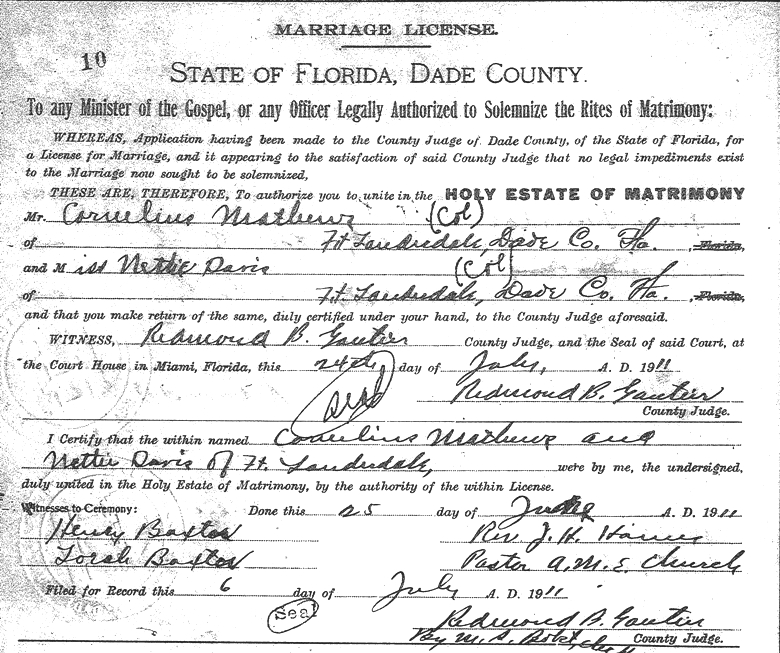 MARRIAGE LICENSE.
10
STATE OF FLORIDA, DADE COUNTY.
To any Minister of the Gospel, or any Officer Legally Authorized to Solemnize the Rites of Matrimony:
WHEREAS, Application having been made to the County Judge of Dade County, of the State of Florida, for
a License for Marriage, and it appearing to the satisfaction of said County Judge that no legal impediments exist
to the Marriage now sought to be solemnized,
THESE ARE, THEREFORE, To authorize you to unite in the HOLY ESTATE OF MATRIMONY
Mr. Cornelius Mathews (Col)
of Ft. Lauderdale, Dade Co. Fla. , Florida,
and Miss Nettie Davis (Col)
of Ft. Lauderdale, Dade Co. Fla. , Florida,
and that you make return of the same, duly certified under your hand, to the County Judge aforesaid.
WITNESS, Redmond B. Gautier County Judge, and the Seal of said Court, at
the Court House in Miami, Florida, this 24th day of July, A. D. 1911
(Seal) Redmond B. Gautier
County Judge.
I Certify that the within named Cornelius Mathews and
Nettie Davis of Ft. Lauderdale, were by me, the undersigned,
duly united in the Holy Estate of Matrimony, by the authority of the within License.
Witnesses to Ceremony: Done this 25 day of A. D. 1911
Henry Baxton Rev. J. H.
Baxton Pastor A.M.E. Church
Filed for Record this 6 day of July A. D. 1911
(Seal) Redmond B. Gautier
County Judge.